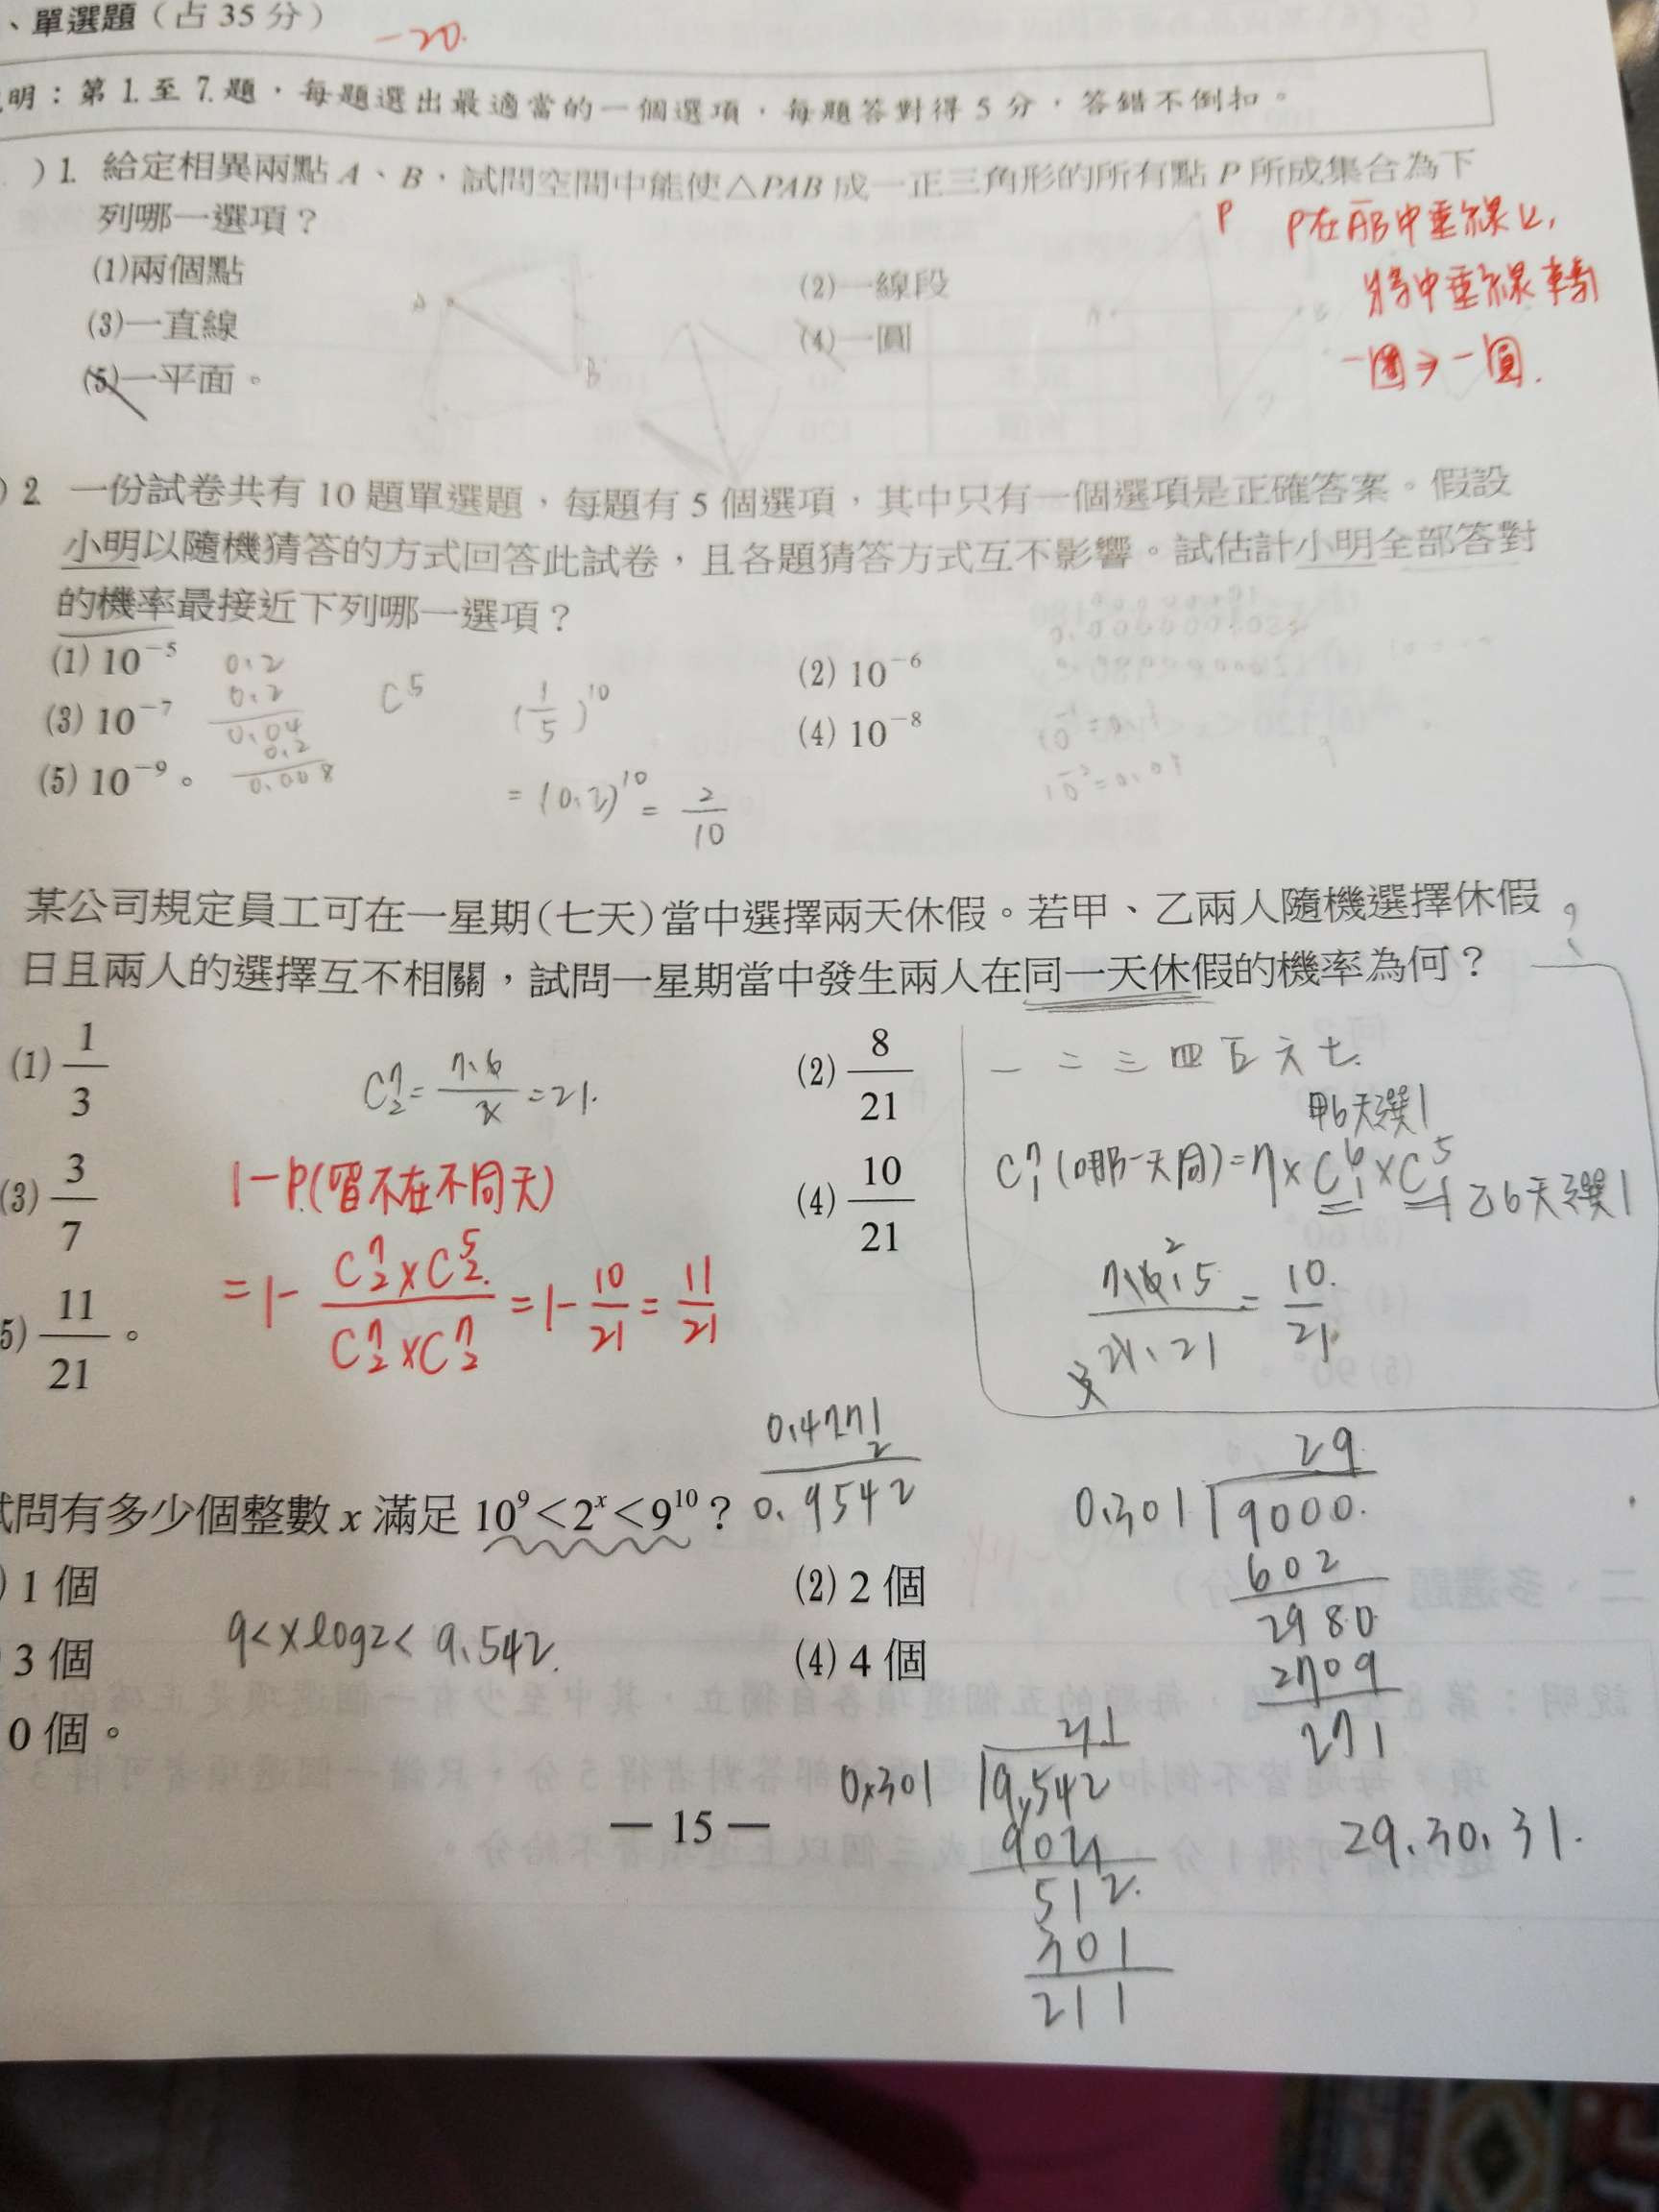 、單選題（占 35 分）
-20.
明：第 1. 至 7. 題，每題選出最適當的一個選項，每題答對得 5 分，答錯不倒扣。
)1. 給定相異兩點 A、B，試問空間中能使△PAB 成一正三角形的所有點 P 所成集合為下
列哪一選項？
P P在AB中垂線上,
(1)兩個點 (2)一線段
將中垂線轉
(3)一直線 (4)一圓
一圈⇒一圓.
(5)一平面。
A
B
)2. 一份試卷共有 10 題單選題，每題有 5 個選項，其中只有一個選項是正確答案。假設
小明以隨機猜答的方式回答此試卷，且各題猜答方式互不影響。試估計小明全部答對
的機率最接近下列哪一選項？
(1) 10⁻⁵ (2) 10⁻⁶
(3) 10⁻⁷ (4) 10⁻⁸
(5) 10⁻⁹。
0.2
0.2
0.04
0.2
0.008
C⁵
(1/5)¹⁰
= (0.2)¹⁰ = 2/10
某公司規定員工可在一星期(七天)當中選擇兩天休假。若甲、乙兩人隨機選擇休假
日且兩人的選擇互不相關，試問一星期當中發生兩人在同一天休假的機率為何？
(1) 1/3 (2) 8/21
(3) 3/7 (4) 10/21
5) 11/21。
C⁷₂ = 7.6/2 = 21.
1-P(皆不在不同天)
= 1 - C⁷₂×C⁵₂/C⁷₂×C⁷₂ = 1 - 10/21 = 11/21
一 二 三 四 五 六 七.
甲6天選1
C⁷₁(哪一天同) = 7×C⁶₁×C⁵₁ 乙6天選1
7.6.5/21.21 = 10/21
試問有多少個整數 x 滿足 10⁹＜2ˣ＜9¹⁰？
) 1 個 (2) 2 個
3 個 (4) 4 個
0 個。
0.4771
2
0.9542
9<xlog2<9.542.
29
0.301 9000.
602
2980
2709
271
31
0.301 9.542
903
512.
301
211
29.30.31.
— 15 —
二、多選題